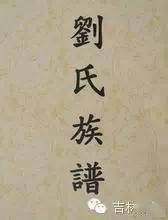 劉氏族譜
吉林